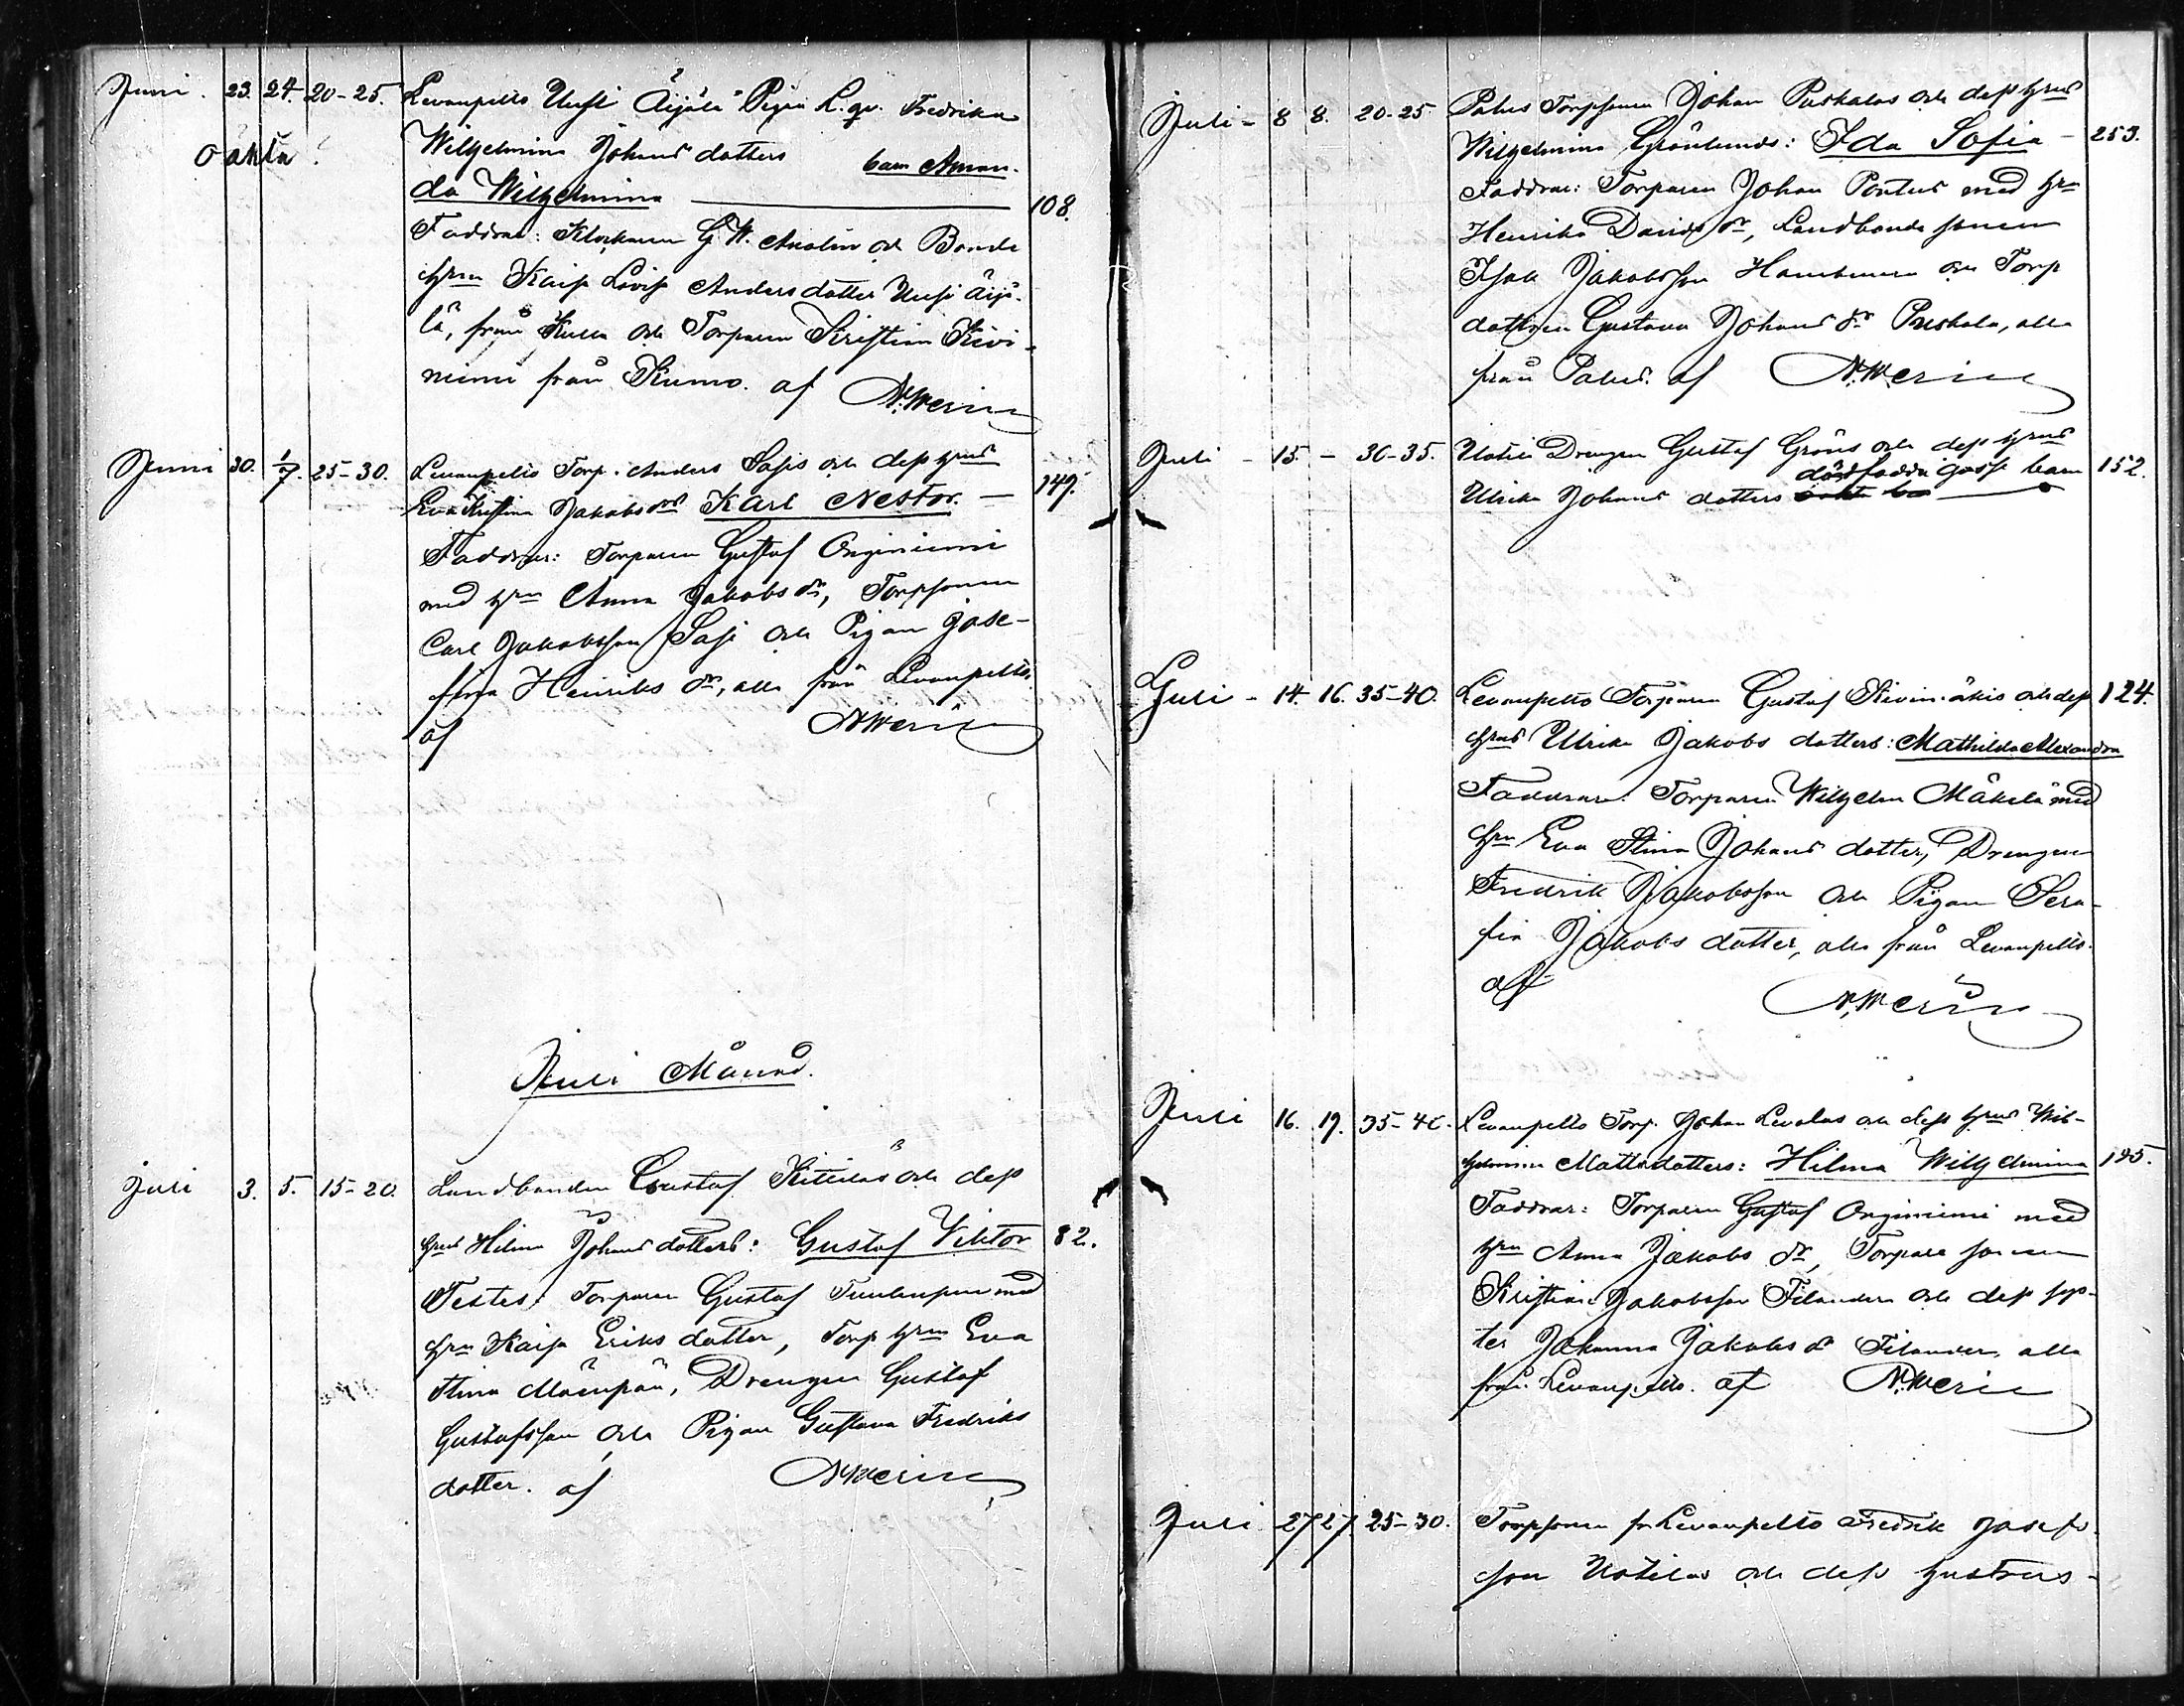 Juni. 23. 24. 20-25. Levanpelto Uusi Äijälä Pigan L. qv. Fredrika
oäkta. Wilhelmina Johans dotters barn Aman-
da Wilhelmina 108.
Faddrar: Klockaren G. W. och Bonde
hrun Kaisa Lovisa Anders dotter Uusi Äijä-
lä, från Kulla och Torparen Kristian Kivi-
niemi från Kumo. af N. Werin
Juni 30. 1/7. 25-30. Levanpelto Torp. Anders Sasis och dess hrus
Eva Kristina Jakobs drs Karl Nestor. — 149.
Faddrar: Torparen Gustaf Orginiemi
med hrn Anna Jakobs dr, Torpsonen
Carl Jakobsson Sasi och Pigan Jose-
fina Henriks dr, alla från Levanpelto.
af N. Werin
Juli Månad.
Juli 3. 5. 15-20. Landbonden Gustaf Kitiläs och dess
hrus Hilma Johans dotters: Gustaf Viktor 82.
Testes: Torparen Gustaf med
hrn Kaisa Eriks dotter, Torp hrun Eva
Stina Mäenpää, Drengen Gustaf
Gustafsson och Pigan Gustava Fredriks
dotter. af N. Werin
Juli - 8 8. 20-25. Palus Torpsonen Johan Puskalas och dess hrus
Wilhelmina Grönlunds: Ida Sofia - 253.
Faddrar: Torparen Johan Pontus med hrn
Henrika Davids dr, Landbonde sonen
Isak Jakobsson och Torp
dottren Gustava Johans dr Puskala, alla
från Palus. af N. Werin
Juli - 15 - 30-35. Uotila Drengen Gustaf Gröns och dess hrus
Ulrika Johans dotters dödfödda gosse barn 152.
Juli - 14. 16. 35-40. Levanpelto Torparen Gustaf Kivimäkis och dess 124.
hrus Ulrika Jakobs dotters: Mathilda Alexandra
Faddrar: Torparen Wilhelm Mäkelä med
hrn Eva Stina Johans dotter, Drengen
Fredrik Jakobsson och Pigan Sera-
fia Jakobs dotter, alla från Levanpelto.
af N. Werin
Juli 16. 19. 35-40. Levanpelto Torp. Johan Levalas och dess hrus Wil-
helmina Mattsdotters: Hilma Wilhelmina 195.
Faddrar: Torparen Gustaf Orginiemi med
hrn Anna Jakobs dr, Torpare sonen
Kristian Jakobsson Filander och dess sys-
ter Johanna Jakobs dr Filander, alla
från Levanpelto. af N. Werin
Juli 27 27 25-30. Torpsonen fr Levanpelto Fredrik Josefs
son Uotilas och dess hustrus-